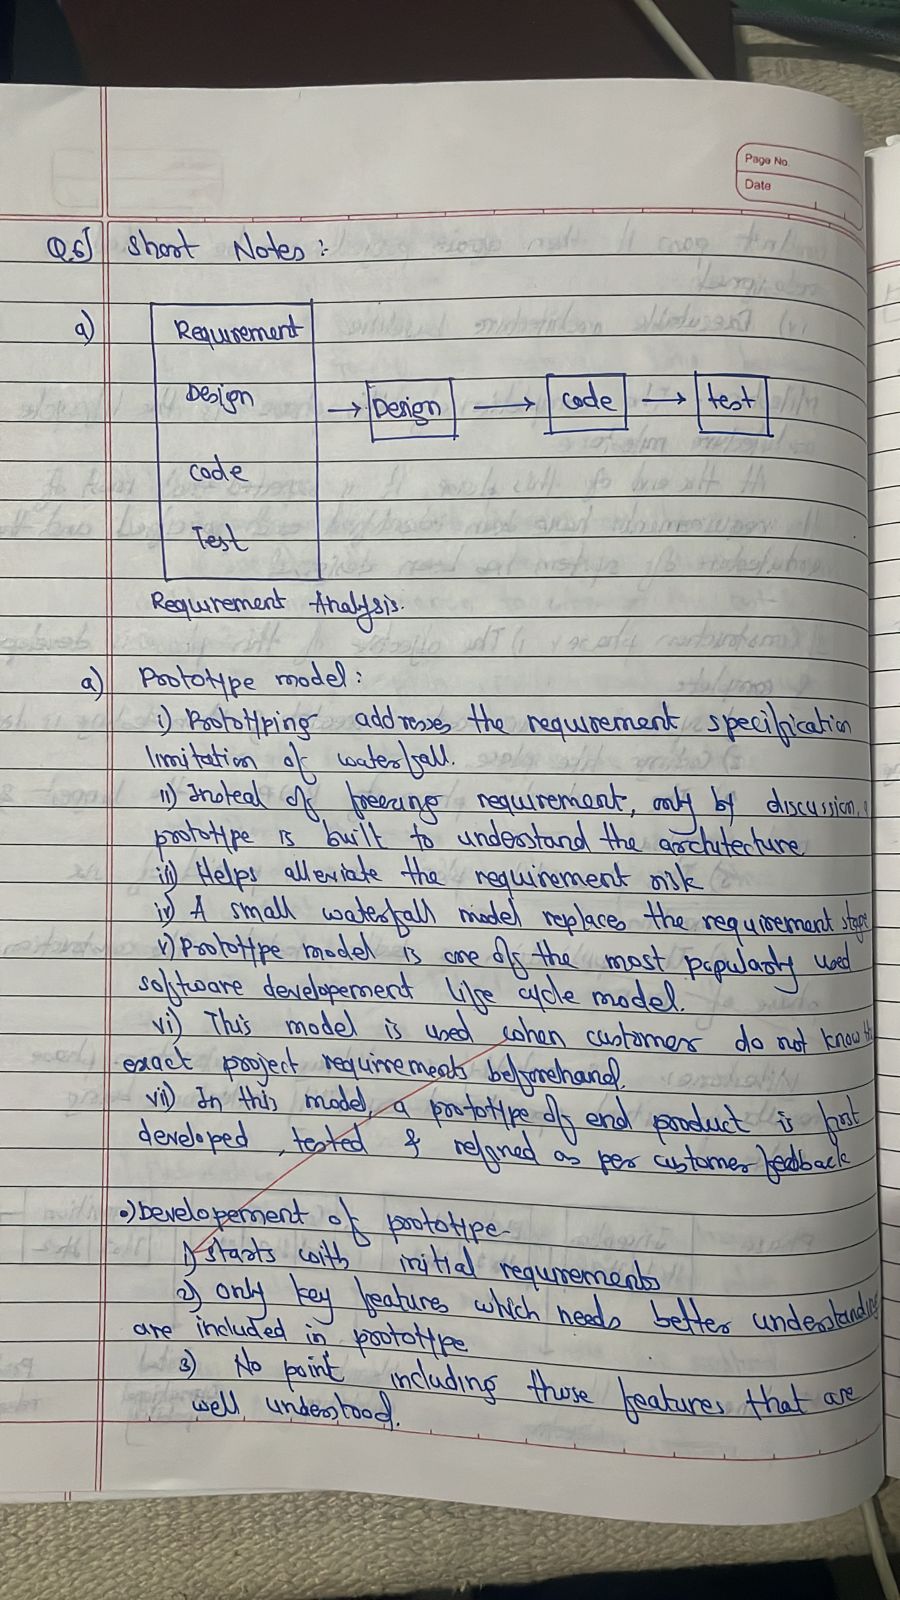 Page No.
Date
Q.6] Short Notes :
a)
Requirement
Design
Code
Test
→ Design → Code → test
Requirement Analysis.
a) Prototype model :
i) Prototyping addresses the requirement specification
limitation of waterfall.
ii) Instead of freezing requirement, only by discussion, a
prototype is built to understand the architecture
iii) Helps alleviate the requirement risk
iv) A small waterfall model replaces the requirement stage
v) Prototype model is one of the most popularly used
software developement life cycle model.
vi) This model is used when customers do not know the
exact project requirements beforehand.
vii) In this model, a prototype of end product is first
developed, tested & refined as per customer feedback
•) Developement of prototype-
1) starts with initial requirements
2) only key features which needs better understanding
are included in prototype
3) No point including those features that are
well understood.